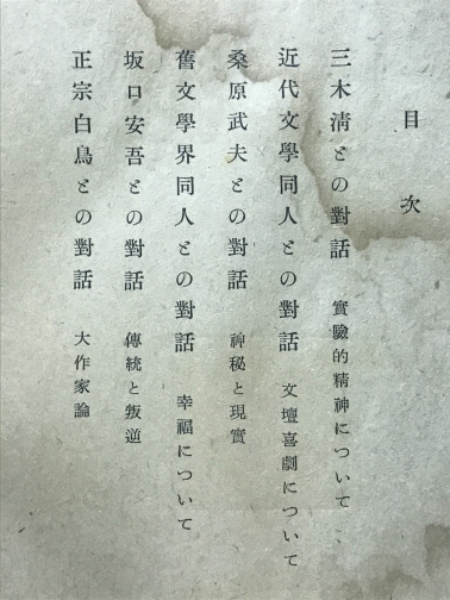 目次
三木淸との對話 實驗的精神について
近代文學同人との對話 文壇喜劇について
桑原武夫との對話 神秘と現實
舊文學界同人との對話 幸福について
坂口安吾との對話 傳統と叛逆
正宗白鳥との對話 大作家論